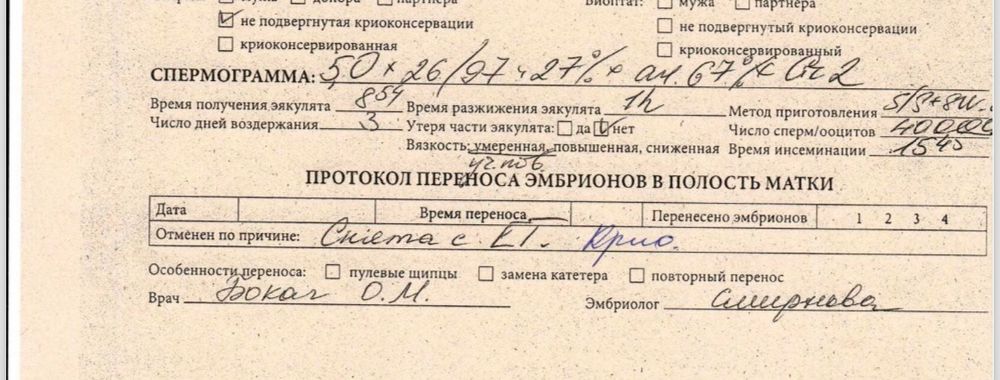 мужа донора партнера Биоптат: мужа партнера
не подвергнутая криоконсервации не подвергнутый криоконсервации
криоконсервированная криоконсервированный
СПЕРМОГРАММА: 5,0 × 26/97 27% 67%
Время получения эякулята 8 54 Время разжижения эякулята 1h Метод приготовления
Число дней воздержания 3 Утеря части эякулята: да нет Число сперм/ооцитов 40000
Вязкость: умеренная, повышенная, сниженная Время инсеминации 15 45
ПРОТОКОЛ ПЕРЕНОСА ЭМБРИОНОВ В ПОЛОСТЬ МАТКИ
Дата Время переноса Перенесено эмбрионов 1 2 3 4
Отменен по причине: Снята с ET. Крио.
Особенности переноса: пулевые щипцы замена катетера повторный перенос
Врач Бокач О.М. Эмбриолог Смирнова